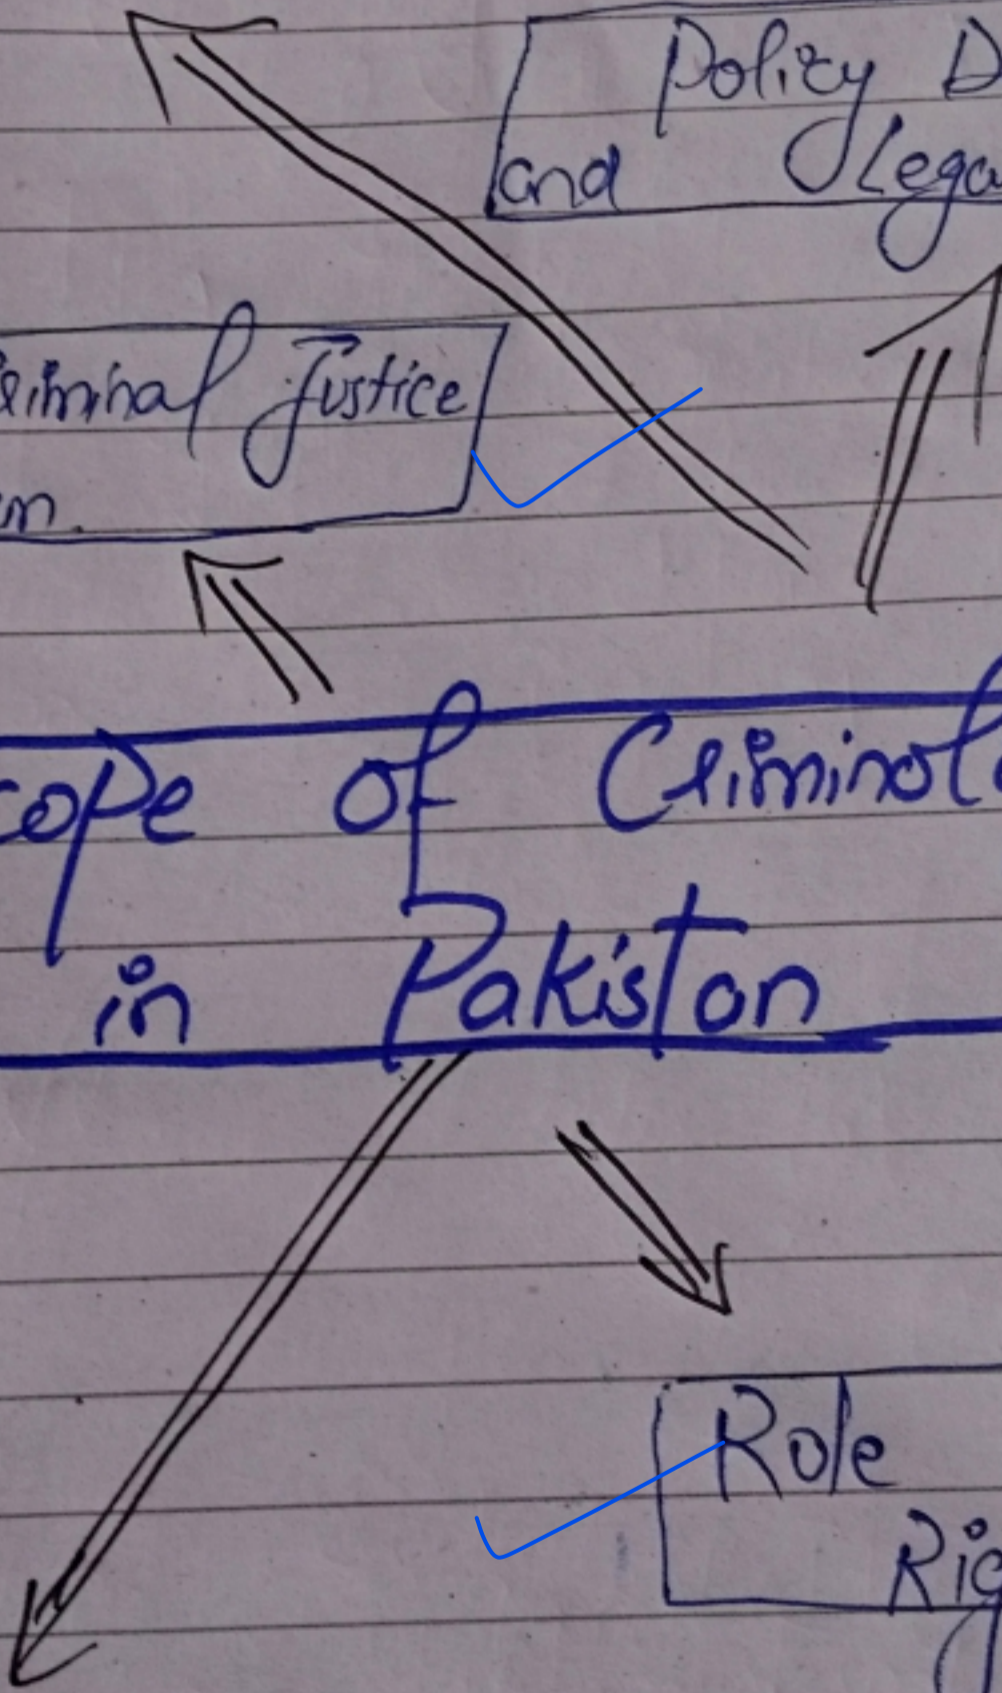 Policy D
and Lega
riminal Justice
m.
cope of Criminolo
in Pakistan
Role
Rig